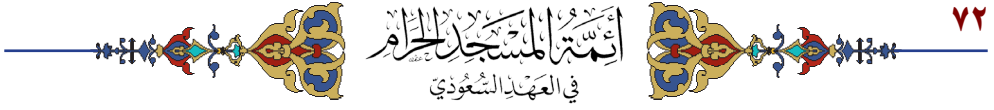 ٧٢
أَئِمَّةُ المَسْجِدِ الحَرَامِ
في العَهْدِ السُّعُودِيّ